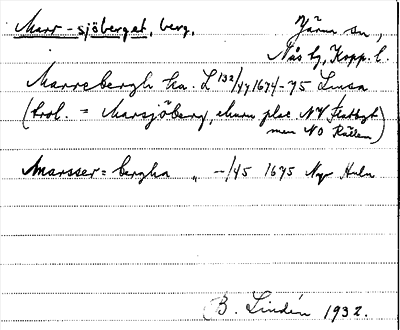 Marr-sjöberget, berg,
Järna sn,
Nås tg, Kopp. l.
Marrebergh ka. L 132/44 1674-75 Lima
(trol. = Marsjöberg, ehuru plac NV Flatbyt
men NO Rällen)
Marsser=bergha " -/45 1675
B. Lindén 1932.